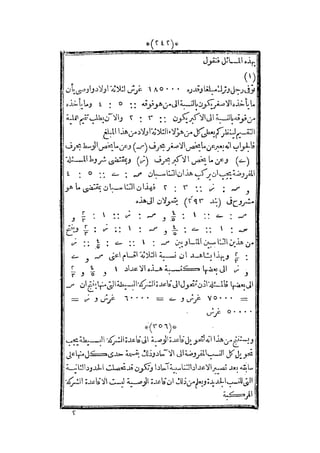 *(٢٤٢)*
بهذه المسائل فنقول
(١)
توفى رجل وترك مبلغا وقدره ١٨٥٠٠٠ غرش لثلاثة اولاد واوصى بأن
ما يأخذه الاصغر يكون بالنسبة الى من هو فوقه :: ٥ : ٤ وما يأخذه
من فوقه بالنسبة الى الاكبر يكون :: ٣ : ٢ والآن يطلب تقيم عملية
التقسيم لينظر كم يعطى كل من هؤلاء الثلاثة اولاد من هذا المبلغ
فالجواب انه يعبر عن ما يخص الاصغر بحرف (صـ) وعن ما يخص الوسط بحرف
(ے) وعن ما يخص الاكبر بحرف (نر) وبمقتضى شروط المسئلة
المفروضة يجب ان يركب هذان التناسبان صـ : ے :: ٥ : ٤
و صـ : نر :: ٣ : ٢ فهذان التناسبان بمقتضى ما هو
مشروح فى (بند ٢٩٣) يتحولان الى هذه
صـ : ے :: ١ : ٤/٥ و صـ : نر :: ١ : ٢/٣ و
صـ : ١ :: ے : ٤/٥ و صـ : ١ :: نر : ٢/٣ وينتج
من هذين التناسبين المتساويين صـ : ١ :: ے : ٤/٥ :: نر
: ٢/٣ وبهذا يشاهد ان نسبة الثلاثة اقسام اعنى صـ و ے
و نر الى بعضها كنسبة هذه الاعداد ١ و ٤/٥ و ٢/٣
الى بعضها فالمسئلة اذن تتحول الى قاعدة الشركة البسيطة التى منها ينتج ان صـ
= ٧٥٠٠٠ غرش و ے = ٦٠٠٠٠ غرش و نر =
٥٠٠٠٠ غرش
*(٣٥٦)*
ويستنتج من هذا انه لتحويل قاعدة الوصية الى قاعدة الشركة البسيطة يجب
تحويل كل النسب المفروضة الى الآحاد وذلك بقسمة حدى كل منها على
سابقه بعد تصيير الاعداد التناسبية آحادا وتكون قد تحصلت الحدود الثانية
التى للنسب الجديدة ويعلم من ذلك ان قاعدة الوصية ليست الا قاعدة الشركة
المركبة